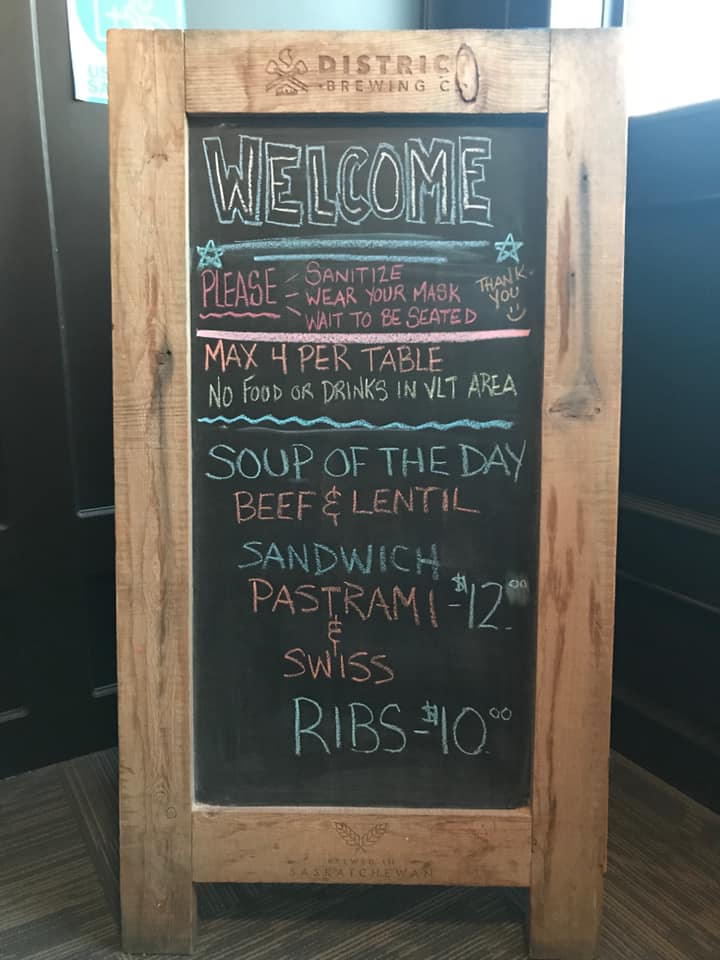 DISTRIC
BREWING C
WELCOME
PLEASE - SANITIZE
- WEAR YOUR MASK
- WAIT TO BE SEATED
THANK
YOU
MAX 4 PER TABLE
NO FOOD OR DRINKS IN VLT AREA
SOUP OF THE DAY
BEEF & LENTIL
SANDWICH
PASTRAMI - $12.00
&
SWISS
RIBS - $10.00
BREWED IN
SASKATCHEWAN